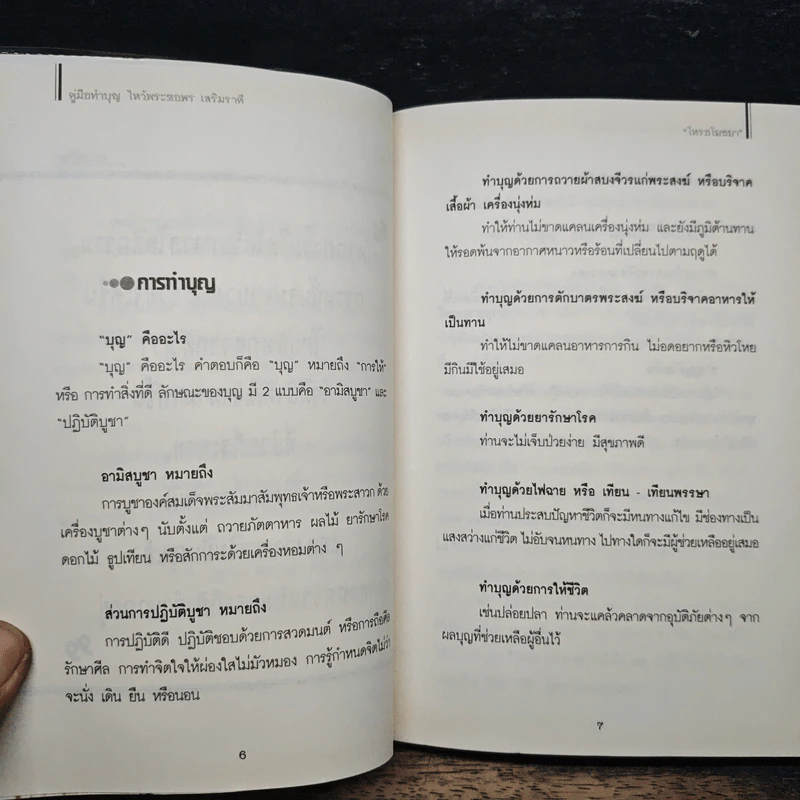 คู่มือทำบุญ ไหว้พระขอพร เสริมราศี
การทำบุญ
"บุญ" คืออะไร
"บุญ" คืออะไร คำตอบก็คือ "บุญ" หมายถึง "การให้"
หรือ การทำสิ่งที่ดี ลักษณะของบุญ มี 2 แบบคือ "อามิสบูชา" และ
"ปฏิบัติบูชา"
อามิสบูชา หมายถึง
การบูชาองค์สมเด็จพระสัมมาสัมพุทธเจ้าหรือพระสาวก ด้วย
เครื่องบูชาต่างๆ นับตั้งแต่ ถวายภัตตาหาร ผลไม้ ยารักษาโรค
ดอกไม้ ธูปเทียน หรือสักการะด้วยเครื่องหอมต่าง ๆ
ส่วนการปฏิบัติบูชา หมายถึง
การปฏิบัติดี ปฏิบัติชอบด้วยการสวดมนต์ หรือการถือศีล
รักษาศีล การทำจิตใจให้ผ่องใสไม่มัวหมอง การรู้กำหนดจิตไม่ว่า
จะนั่ง เดิน ยืน หรือนอน
6
"โหราโมชมา"
ทำบุญด้วยการถวายผ้าสบงจีวรแก่พระสงฆ์ หรือบริจาค
เสื้อผ้า เครื่องนุ่งห่ม
ทำให้ท่านไม่ขาดแคลนเครื่องนุ่งห่ม และยังมีภูมิต้านทาน
ให้รอดพ้นจากอากาศหนาวหรือร้อนที่เปลี่ยนไปตามฤดูได้
ทำบุญด้วยการตักบาตรพระสงฆ์ หรือบริจาคอาหารให้
เป็นทาน
ทำให้ไม่ขาดแคลนอาหารการกิน ไม่อดอยากหรือหิวโหย
มีกินมีใช้อยู่เสมอ
ทำบุญด้วยยารักษาโรค
ท่านจะไม่เจ็บป่วยง่าย มีสุขภาพดี
ทำบุญด้วยไฟฉาย หรือ เทียน - เทียนพรรษา
เมื่อท่านประสบปัญหาชีวิตก็จะมีหนทางแก้ไข มีช่องทางเป็น
แสงสว่างแก่ชีวิต ไม่อับจนหนทาง ไปทางใดก็จะมีผู้ช่วยเหลืออยู่เสมอ
ทำบุญด้วยการให้ชีวิต
เช่นปล่อยปลา ท่านจะแคล้วคลาดจากอุบัติภัยต่างๆ จาก
ผลบุญที่ช่วยเหลือผู้อื่นไว้
๗